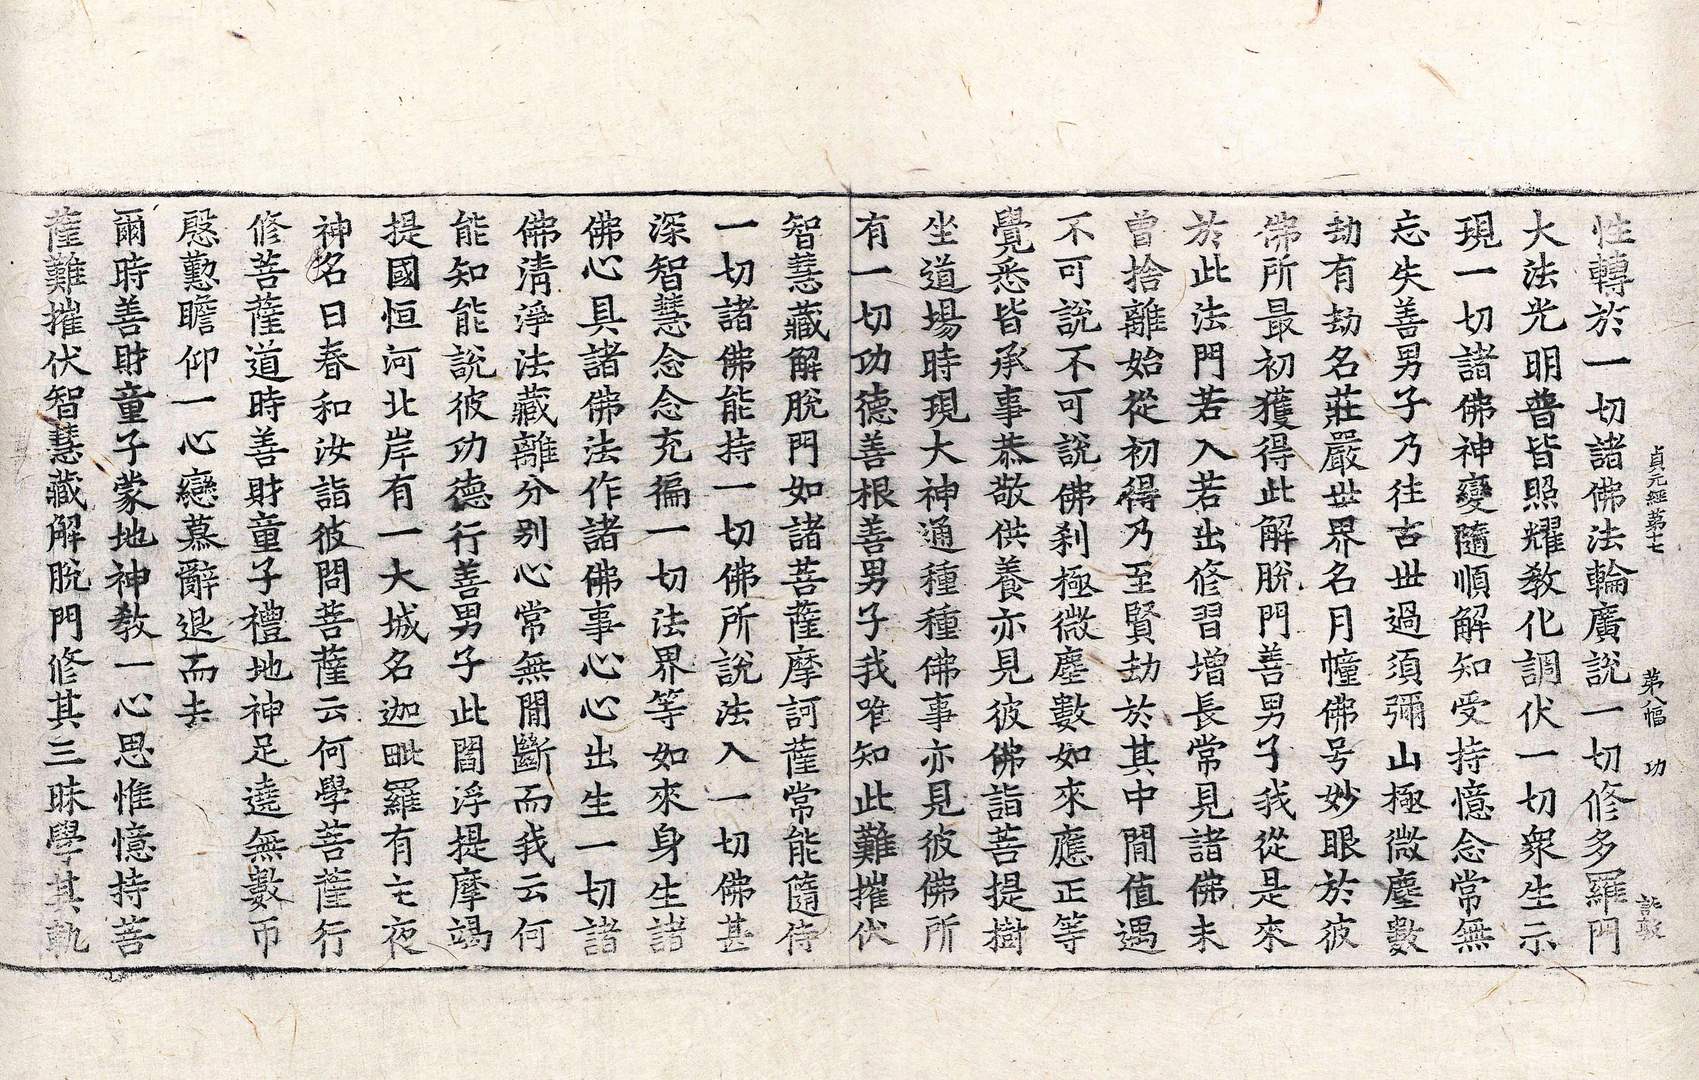 貞元經第十七 第八幅 功
性轉於一切諸佛法輪廣說一切修多羅門
大法光明普皆照耀敎化調伏一切衆生示
現一切諸佛神變隨順解知受持憶念常無
忘失善男子乃往古世過須彌山極微塵數
劫有劫名莊嚴世界名月幢佛号妙眼於彼
佛所最初獲得此解脫門善男子我從是來
於此法門若入若出修習增長常見諸佛未
曾捨離始從初得乃至賢劫於其中閒値遇
不可說不可說佛刹極微塵數如來應正等
覺悉皆承事恭敬供養亦見彼佛詣菩提樹
坐道場時現大神通種種佛事亦見彼佛所
有一切功德善根善男子我唯知此難摧伏
智慧藏解脫門如諸菩薩摩訶薩常能隨侍
一切諸佛能持一切佛所說法入一切佛甚
深智慧念念充徧一切法界等如來身生諸
佛心具諸佛法作諸佛事心心出生一切諸
佛淸淨法藏離分別心常無閒斷而我云何
能知能說彼功德行善男子此閻浮提摩竭
提國恒河北岸有一大城名迦毗羅有主夜
神名曰春和汝詣彼問菩薩云何學菩薩行
修菩薩道時善財童子禮地神足遶無數帀
慇懃瞻仰一心戀慕辭退而去
爾時善財童子蒙地神敎一心思惟憶持菩
薩難摧伏智慧藏解脫門修其三昧學其軌